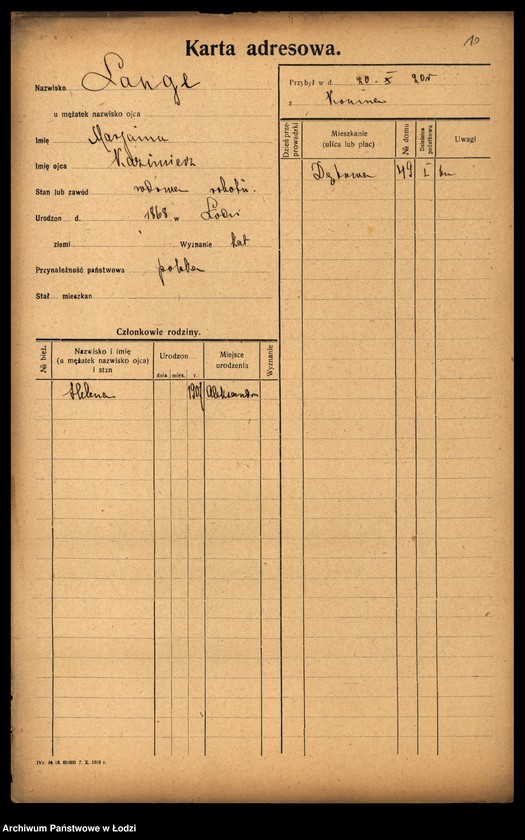 10
Karta adresowa.
Nazwisko Lange
u mężatek nazwisko ojca
Imię Marjanna
Imię ojca Kazimierz
Stan lub zawód wdowa robotn.
Urodzon d. 1868 w Łodzi
ziemi Wyznanie kat
Przynależność państwowa polska
Stał mieszkan
Przybył w d. 20 X 20 r
z Konina
Dzień przeprowadzki
Mieszkanie (ulica lub plac)
№ domu
Dzielnica podatkowa
Uwagi
Dąbrowska 49 I
Członkowie rodziny.
№ bież.
Nazwisko i imię
(u mężatek nazwisko ojca)
i stan
Urodzon
dnia mies. r.
Miejsce urodzenia
Wyznanie
Helena 1907 Aleksandrów
IVc № 18. 60 000 7. X. 1919 r.
Archiwum Państwowe w Łodzi